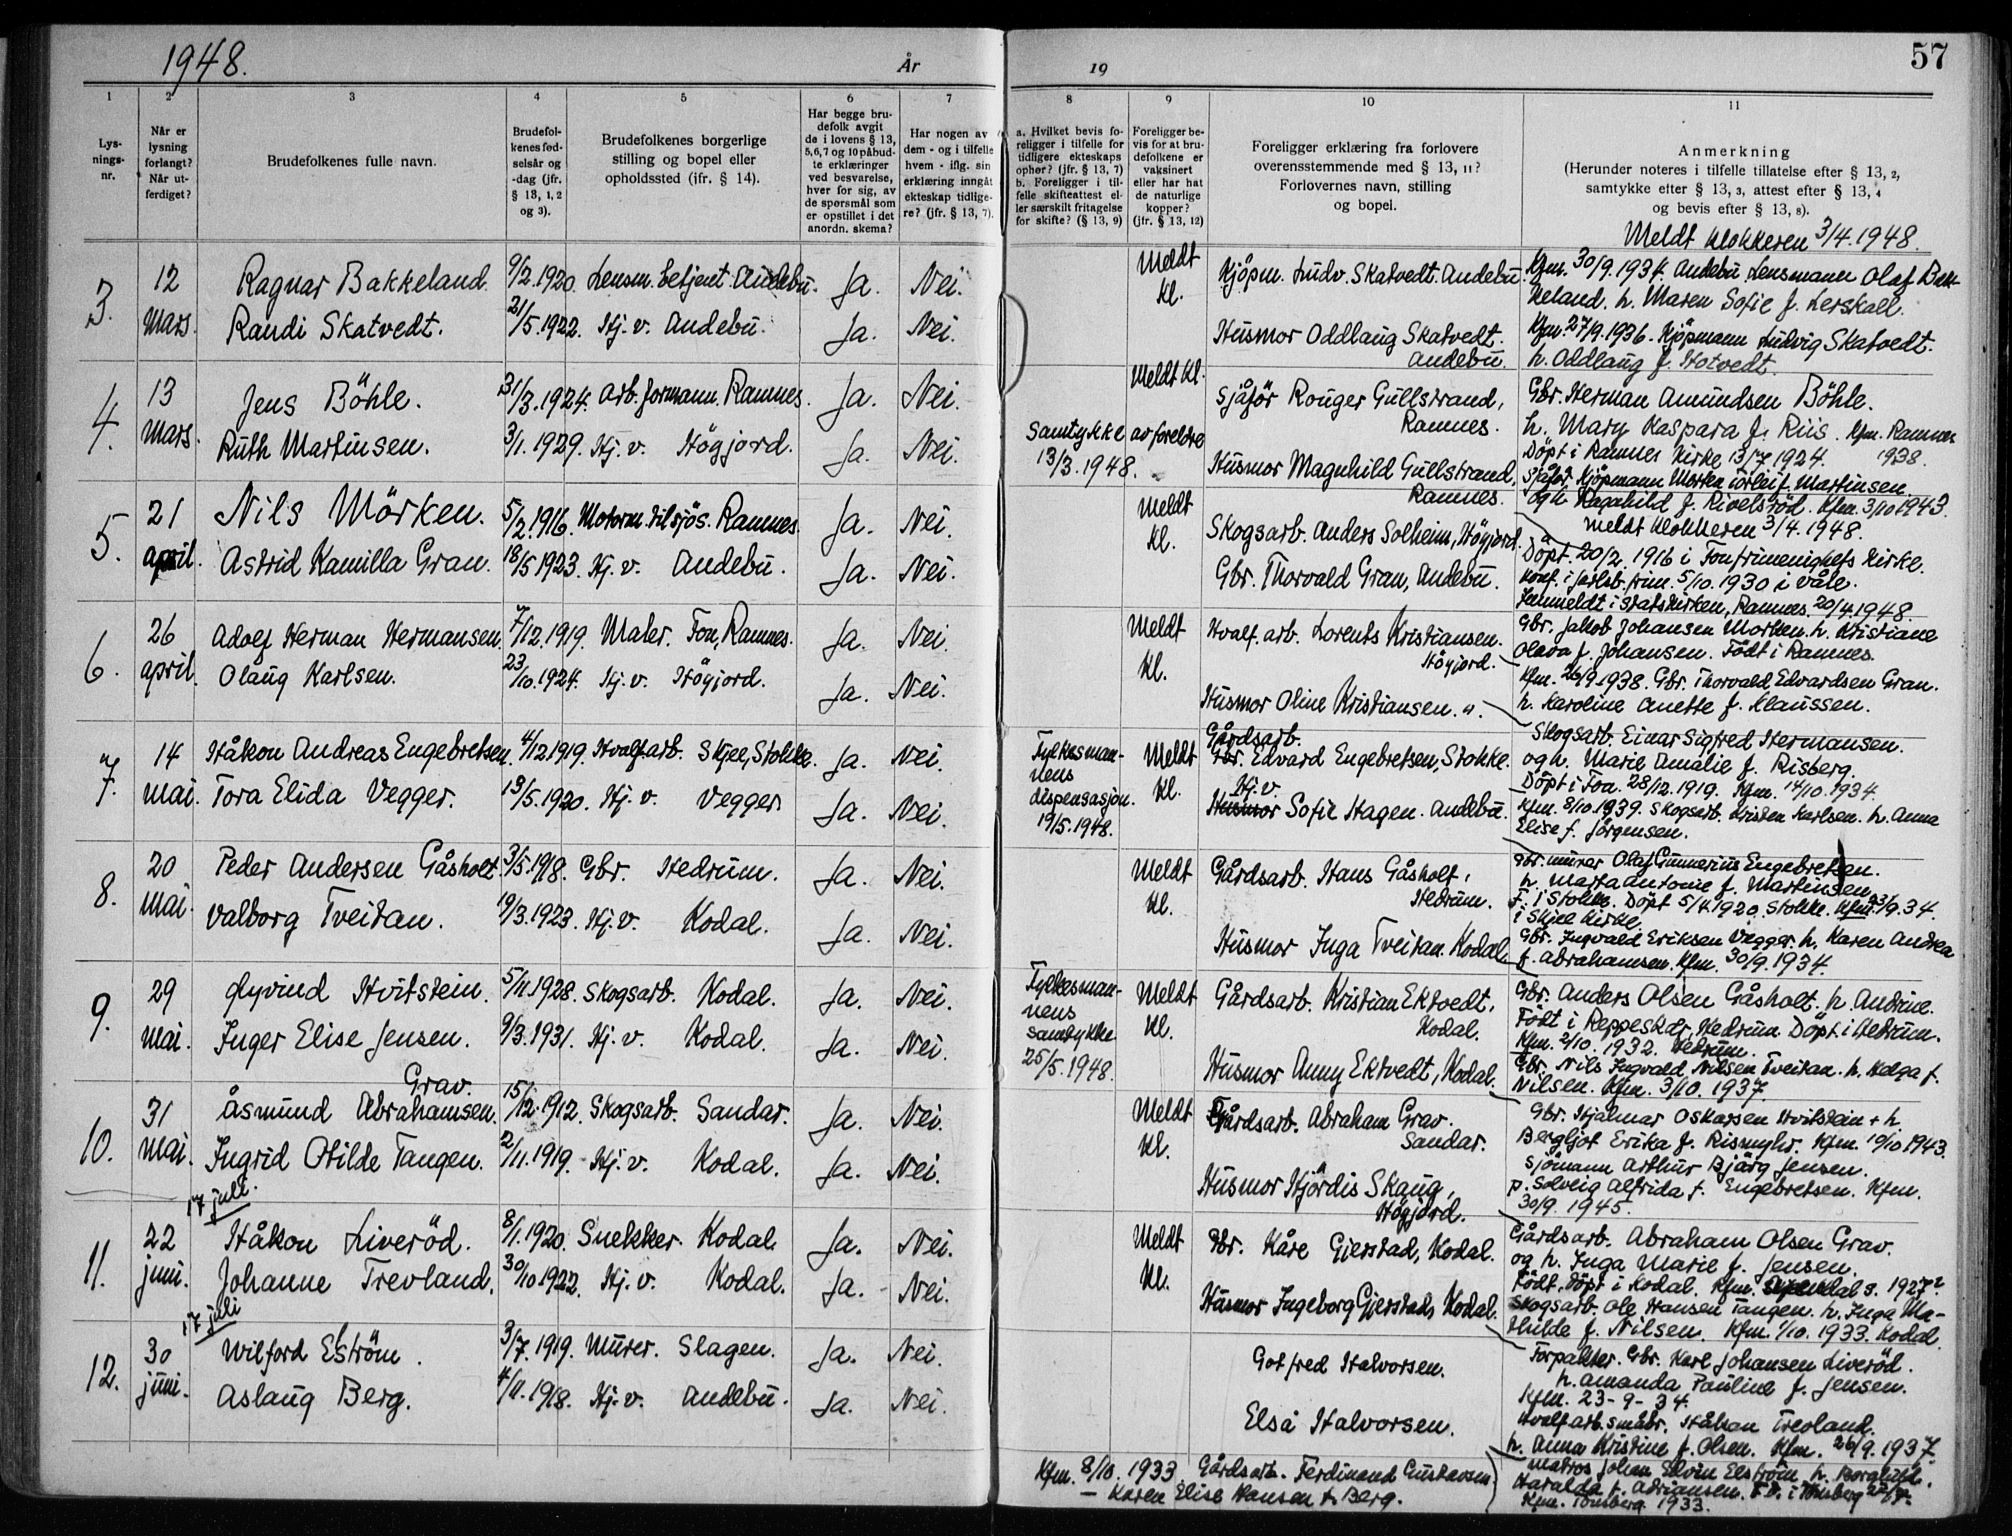 1948.
År
19
57
1
2
3
4
5
6
7
8
9
10
11
Lys-
nings-
nr.
Når er
lysning
forlangt?
Når ut-
ferdiget?
Brudefolkenes fulle navn.
Brudefol-
kenes fød-
selsår og
-dag (jfr.
§ 13, 1, 2
og 3).
Brudefolkenes borgerlige
stilling og bopel eller
opholdssted (ifr. § 14).
Har begge bru-
defolk avgit
de i lovens § 13,
5,6,7 og 10 påbud-
te erklæringer
ved besvarelse,
hver for sig, av
de spørsmål som
er opstillet i det
anordn. skema?
Har nogen av
dem - og i tilfelle
hvem - iflg. sin
erklæring inngåt
ekteskap tidlige-
re? (jfr. § 13, 7).
a. Hvilket bevis fo-
religger i tilfelle for
tidligere ekteskaps
ophør? (jfr. § 13, 7)
b. Foreligger i til-
felle skifteattest el-
ler særskilt fritagelse
for skifte? (§ 13, 9)
Foreligger be-
vis for at bru-
defolkene er
vaksinert
eller har hat
de naturlige
kopper?
(jfr. § 13, 12)
Foreligger erklæring fra forlovere
overensstemmende med § 13, 11?
Forlovernes navn, stilling
og bopel.
Anmerkning
(Herunder noteres i tilfelle tillatelse efter § 13, 2,
samtykke efter § 13, 3, attest efter § 13, 4
og bevis efter § 13, 8).
Meldt klokkeren 3/4.1948.
3.
12
mars.
Ragnar Bakkeland. 9/2.1920. Lensm. betjent. Andebu. Ja. Nei.
Randi Skatvedt. 21/5.1922. Hj. v. Andebu. Ja. Nei.
Meldt
kl.
Kjöpm. Ludv. Skatvedt. Andebu.
Husmor Oddlaug Skatvedt.
Andebu.
Kfm. 30/9.1934. Andebu. Lensmann Olaf Bak-
keland. h. Maren Sofie f. Lerskall.
Kfm. 27/9.1936. Kjöpmann Ludvig Skatvedt.
h. Oddlaug f. Hotvedt.
4.
13
mars.
Jens Böhle. 31/3.1924. Arb. formann. Ramnes. Ja. Nei.
Ruth Martinsen. 3/1.1929. Hj. v. Högjord. Ja. Nei.
Meldt kl.
Samtykke av foreldre
13/3.1948.
Sjåför Rouger Gullstrand,
Ramnes.
Husmor Magnhild Gullstrand,
Ramnes.
Gbr. Herman Amundsen Böhle.
h. Mary Kaspara f. Riis. Kfm. Ramnes
Döpt i Ramnes kirke 13/7.1924. 1938.
Sjåför. Kjöpmann Morten Torleif Martinsen
og h. Ragnhild f. Rivelsröd. Kfm. 3/10 1943.
meldt klokkeren 3/4.1948.
5.
21
april.
Nils Mörken. 5/2.1916. Motorm. tilsjös. Ramnes. Ja. Nei.
Astrid Kamilla Gran. 18/5 1923. Hj. v. Andebu. Ja. Nei.
Meldt
kl.
Skogsarb. Anders Solheim, Högjord.
Gbr. Thorvald Gran, Andebu.
Döpt. 20/2. 1916 i Fon frimenighets kirke.
Konf. i Jarlsb. frim. 5/10.1930 i Våle.
Innmeldt i statskirken, Ramnes. 20/4 1948.
Gbr. Jakob Johansen Mörken. h. Kristiane
Olava f. Johansen. Födt i Ramnes.
Kfm. 26/9.1938. Gbr. Thorvald Edvardsen Gran.
h. Karoline Anette f. Klaussen.
6.
26
april.
Adolf Herman Hermansen. 7/12.1919. Maler. Fon, Ramnes. Ja. Nei.
Olaug Karlsen. 23/10.1924. Hj. v. Högjord. Ja. Nei.
Meldt
kl.
Hvalf. arb. Lorents Kristiansen.
Högjord.
Husmor Oline Kristiansen. ".
Skogsarb. Einar Sigfred Hermansen.
og h. Marie Amalie f. Risberg.
Döpt i Fon. 28/12.1919. Kfm. 14/10.1934.
Kfm. 8/10.1939. Skogsarb. Kristen Karlsen. h. Anna
Elise f. Jörgensen.
7.
14
mai.
Håkon Andreas Engebretsen. 4/12 1919. Hvalfarb. Skjee, Stokke. Ja. Nei.
Tora Elida Vegger. 13/5.1920. Hj. v. Vegger. Ja. Nei.
Fylkesman-
nens
dispensasjon.
19/5.1948.
Meldt
kl.
Gårdsarb.
Gbr. Edvard Engebretsen, Stokke.
Hj. v.
Husmor Sofie Hagen. Andebu.
Gbr. murer Olaf Gunnerius Engebretsen.
h. Marta Antonie f. Martinsen.
F. i Stokke. Döpt 5/4 1920. Stokke. Kfm. 23/9.34.
i Skjee kirke.
Gbr. Ingvald Eriksen Vegger. h. Karen Andrea
f. Abrahamsen. Kfm. 30/9.1934.
8.
20
mai.
Peder Andersen Gåsholt. 3/5.1918. Gbr. Hedrum. Ja. Nei.
Valborg Tveitan. 19/3.1923. Hj. v. Kodal. Ja. Nei.
Meldt
kl.
Gårdsarb. Hans Gåsholt,
Hedrum.
Husmor Inga Tveitan. Kodal
Gbr. Anders Olsen Gåsholt. h. Andrine.
Födt i Reppeskår, Hedrum Döpt i Hedrum.
Kfm. 2/10. 1932. Hedrum.
Gbr. Nils Ingvald Nilsen Tveitan. h. Helga f.
Nilsen. Kfm. 3/10. 1937.
9.
29
mai.
Øyvind Hvitstein. 5/11.1928. Skogsarb. Kodal. Ja. Nei.
Inger Elise Jensen. 9/3.1931. Hj. v. Kodal. Ja. Nei.
Fylkesman-
nens
samtykke
25/5.1948.
Meldt
kl.
Gårdsarb. Kristian Ektvedt,
Kodal.
Husmor Anny Ektvedt, Kodal.
Gbr. Hjalmar Oskarsen Hvitstein + h.
Bergljot Erika f. Rismyhr. Kfm. 10/10 1943.
Sjömann Arthur Bjärg Jensen.
p. Solveig Alfrida f. Engebretsen. Kfm.
30/9. 1945.
10.
31
mai.
Grav.
Åsmund Abrahamsen. 15/12.1912. Skogsarb. Sandar. Ja. Nei.
Ingrid Otilde Tangen. 2/11.1919. Hj. v. Kodal. Ja. Nei.
Meldt
kl.
Gårdsarb. Abraham Grav.
Sandar.
Husmor Hjördis Skaug,
Högjord.
Gårdsarb. Abraham Olsen Grav.
og h. Inga Marie f. Jensen.
Födt, döpt i Kodal. Kfm. s. 1927?
Skogsarb. Ole Hansen Tangen. h. Inga Ma-
thilde f. Nilsen. Kfm. 1/10. 1933. Kodal
17 juli.
11.
22
juni.
Håkon Liveröd. 8/1.1920. Snekker. Kodal. Ja. Nei.
Johanne Trevland. 30/10 1922. Hj. v. Kodal. Ja. Nei.
Meldt
kl.
Gbr. Kåre Gjerstad, Kodal.
Husmor Ingeborg Gjerstad, Kodal.
Forpakter. Gbr. Karl Johansen Liveröd.
h. Amanda Pauline f. Jensen.
Kfm. 23-9-34.
Hvalfarb. småbr. Håkon Trevland.
h. Anna Kristine f. Olsen. Kfm. 26/9.1937.
17 juli
12.
30
juni.
Wilford Eström. 3/7.1919. Murer. Slagen. Ja. Nei.
Aslaug Berg. 4/11.1918. Hj. v. Andebu. Ja. Nei.
Gotfred Halvorsen.
Elsa Halvorsen.
Matros Johan Edvin Elström h. Borghild
Haralda f. Adriansen. F.D. i Tönsberg
Kfm. Tönsberg 1933.
Kfm. 8/10. 1933 Gårdsarb. Ferdinand Gustavsen
— Karen Elise Hansen f. Berg.